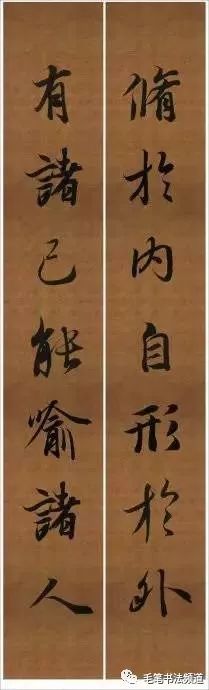 脩於内自形於外
有諸己能喻諸人
毛笔书法频道